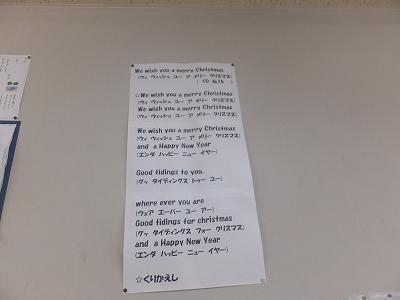 We wish you a merry Christmas
(ウィ ウィッシュ ユー ア メリー クリスマス)
( CD №15 )
☆We wish you a merry Christmas
(ウィ ウィッシュ ユー ア メリー クリスマス)
We wish you a merry Christmas
(ウィ ウィッシュ ユー ア メリー クリスマス)
We wish you a merry Christmas
(ウィ ウィッシュ ユー ア メリー クリスマス)
and a Happy New Year
(エンダ ハッピー ニュー イヤー)
Good tidings to you.
(グッ タイディングス トゥー ユー)
where ever you are
(ウェア エーバー ユー アー)
Good tidings for christmas
(グッ タイディングス フォー クリスマス)
and a Happy New Year
(エンダ ハッピー ニュー イヤー)
☆くりかえし